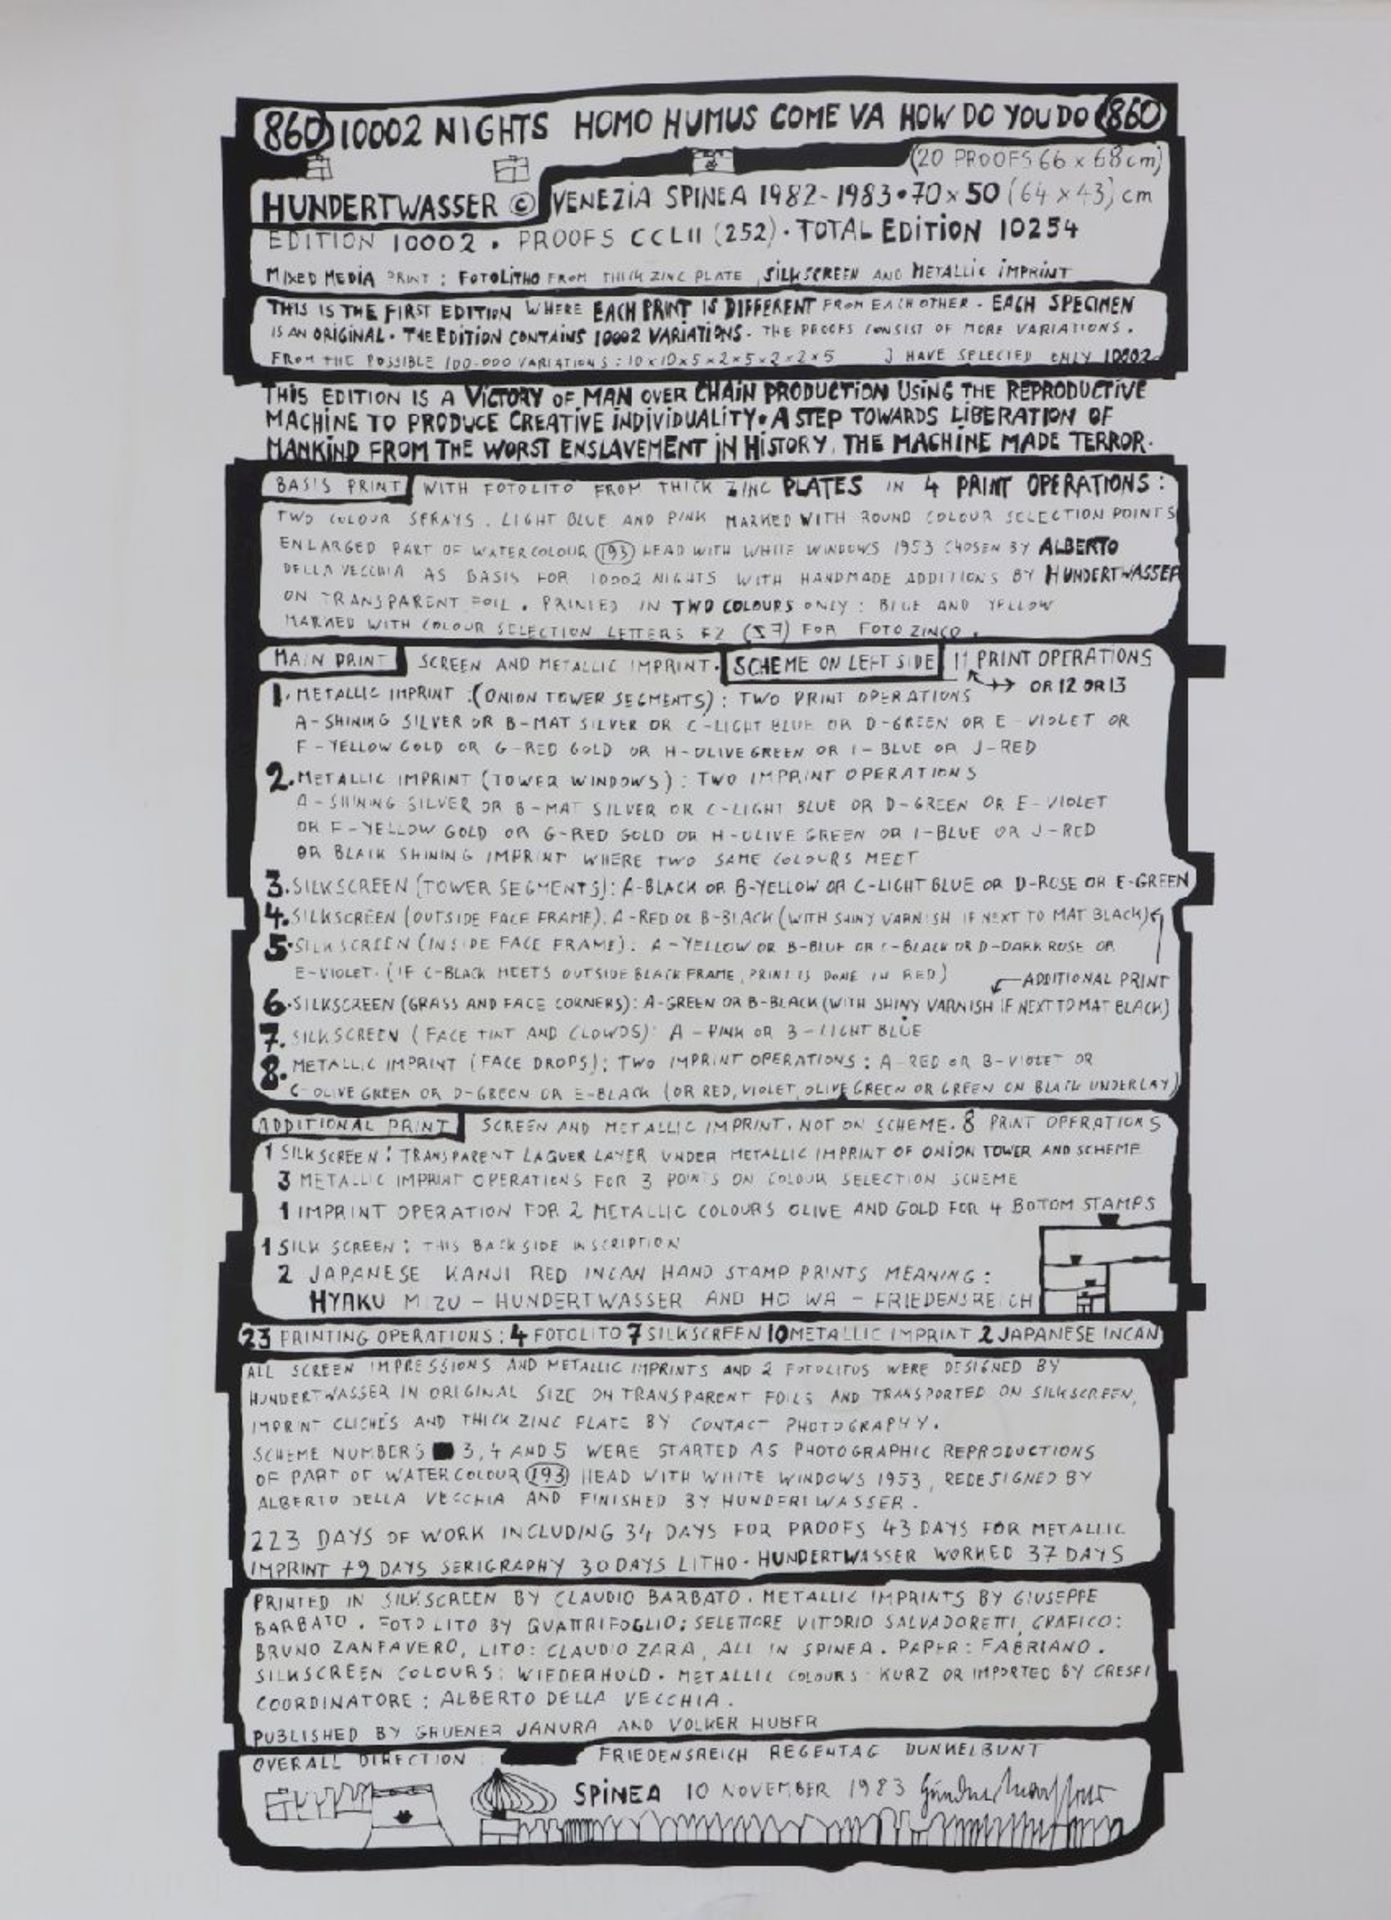 860 10002 NIGHTS HOMO HUMUS COME VA HOW DO YOU DO 860
(20 PROOFS 66 x 68 cm)
HUNDERTWASSER © VENEZIA SPINEA 1982-1983 • 70 x 50 (64 x 43) cm
EDITION 10002 . PROOFS CCLII (252) . TOTAL EDITION 10254
MIXED MEDIA PRINT : FOTOLITHO FROM THICK ZINC PLATE , SILKSCREEN AND METALLIC IMPRINT
THIS IS THE FIRST EDITION WHERE EACH PRINT IS DIFFERENT FROM EACH OTHER . EACH SPECIMEN
IS AN ORIGINAL . THE EDITION CONTAINS 10002 VARIATIONS . THE PROOFS CONSIST OF MORE VARIATIONS .
FROM THE POSSIBLE 100.000 VARIATIONS : 10 x 10 x 5 x 2 x 5 x 2 x 2 x 5 I HAVE SELECTED ONLY 10002
THIS EDITION IS A VICTORY OF MAN OVER CHAIN PRODUCTION USING THE REPRODUCTIVE
MACHINE TO PRODUCE CREATIVE INDIVIDUALITY • A STEP TOWARDS LIBERATION OF
MANKIND FROM THE WORST ENSLAVEMENT IN HISTORY, THE MACHINE MADE TERROR .
BASIS PRINT WITH FOTOLITO FROM THICK ZINC PLATES IN 4 PRINT OPERATIONS :
TWO COLOUR SPRAYS . LIGHT BLUE AND PINK MARKED WITH ROUND COLOUR SELECTION POINTS
ENLARGED PART OF WATERCOLOUR 193 HEAD WITH WHITE WINDOWS 1953 CHOSEN BY ALBERTO
DELLA VECCHIA AS BASIS FOR 10002 NIGHTS WITH HANDMADE ADDITIONS BY HUNDERTWASSER
ON TRANSPARENT FOIL . PRINTED IN TWO COLOURS ONLY : BLUE AND YELLOW
MARKED WITH COLOUR SELECTION LETTERS FZ FOR FOTO ZINCO .
MAIN PRINT SCREEN AND METALLIC IMPRINT . SCHEME ON LEFT SIDE 11 PRINT OPERATIONS
OR 12 OR 13
1. METALLIC IMPRINT : (ONION TOWER SEGMENTS) : TWO PRINT OPERATIONS
A-SHINING SILVER OR B-MAT SILVER OR C-LIGHT BLUE OR D-GREEN OR E-VIOLET OR
F-YELLOW GOLD OR G-RED GOLD OR H-OLIVE GREEN OR I-BLUE OR J-RED
2. METALLIC IMPRINT (TOWER WINDOWS) : TWO IMPRINT OPERATIONS
A-SHINING SILVER OR B-MAT SILVER OR C-LIGHT BLUE OR D-GREEN OR E-VIOLET
OR F-YELLOW GOLD OR G-RED GOLD OR H-OLIVE GREEN OR I-BLUE OR J-RED
OR BLACK SHINING IMPRINT WHERE TWO SAME COLOURS MEET
3. SILKSCREEN (TOWER SEGMENTS) : A-BLACK OR B-YELLOW OR C-LIGHT BLUE OR D-ROSE OR E-GREEN
4. SILKSCREEN (OUTSIDE FACE FRAME) : A-RED OR B-BLACK (WITH SHINY VARNISH IF NEXT TO MAT BLACK)
5. SILKSCREEN (INSIDE FACE FRAME) : A-YELLOW OR B-BLUE OR C-BLACK OR D-DARK ROSE OR
E-VIOLET . (IF C-BLACK MEETS OUTSIDE BLACK FRAME, PRINT IS DONE IN RED) ADDITIONAL PRINT
6. SILKSCREEN (GRASS AND FACE CORNERS) : A-GREEN OR B-BLACK (WITH SHINY VARNISH IF NEXT TO MAT BLACK)
7. SILKSCREEN (FACE TINT AND CLOWDS) : A-PINK OR B-LIGHT BLUE
8. METALLIC IMPRINT (FACE DROPS) : TWO IMPRINT OPERATIONS : A-RED OR B-VIOLET OR
C-OLIVE GREEN OR D-GREEN OR E-BLACK (OR RED, VIOLET, OLIVE GREEN OR GREEN ON BLACK UNDERLAY)
ADDITIONAL PRINT SCREEN AND METALLIC IMPRINT . NOT ON SCHEME . 8 PRINT OPERATIONS
1 SILKSCREEN : TRANSPARENT LAQUER LAYER UNDER METALLIC IMPRINT OF ONION TOWER AND SCHEME
3 METALLIC IMPRINT OPERATIONS FOR 3 POINTS ON COLOUR SELECTION SCHEME
1 IMPRINT OPERATION FOR 2 METALLIC COLOURS OLIVE AND GOLD FOR 4 BOTOM STAMPS
1 SILK SCREEN : THIS BACKSIDE INSCRIPTION
2 JAPANESE KANJI RED INCAN HAND STAMP PRINTS MEANING :
HYAKU MIZU - HUNDERTWASSER AND HO WA - FRIEDENSREICH
23 PRINTING OPERATIONS : 4 FOTOLITO 7 SILKSCREEN 10 METALLIC IMPRINT 2 JAPANESE INCAN
ALL SCREEN IMPRESSIONS AND METALLIC IMPRINTS AND 2 FOTOLITOS WERE DESIGNED BY
HUNDERTWASSER IN ORIGINAL SIZE ON TRANSPARENT FOILS AND TRANSPORTED ON SILKSCREEN,
IMPRINT CLICHÉS AND THICK ZINC PLATE BY CONTACT PHOTOGRAPHY .
SCHEME NUMBERS 3, 4 AND 5 WERE STARTED AS PHOTOGRAPHIC REPRODUCTIONS
OF PART OF WATERCOLOUR 193 HEAD WITH WHITE WINDOWS 1953, REDESIGNED BY
ALBERTO DELLA VECCHIA AND FINISHED BY HUNDERTWASSER .
223 DAYS OF WORK INCLUDING 34 DAYS FOR PROOFS 43 DAYS FOR METALLIC
IMPRINT 79 DAYS SERIGRAPHY 30 DAYS LITHO . HUNDERTWASSER WORKED 37 DAYS
PRINTED IN SILKSCREEN BY CLAUDIO BARBATO . METALLIC IMPRINTS BY GIUSEPPE
BARBATO . FOTOLITO BY QUATTRIFOGLIO : SELETTORE VITTORIO SALVADORETTI, GRAFICO :
BRUNO ZANFAVERO, LITO : CLAUDIO ZARA, ALL IN SPINEA . PAPER : FABRIANO .
SILKSCREEN COLOURS : WIEDERHOLD . METALLIC COLOURS : KURZ OR IMPORTED BY CRESPI
COORDINATORE : ALBERTO DELLA VECCHIA .
PUBLISHED BY GRUENER JANURA AND VOLKER HUBER
OVERALL DIRECTION : FRIEDENSREICH REGENTAG DUNKELBUNT
SPINEA 10 NOVEMBER 1983 Hundertwasser